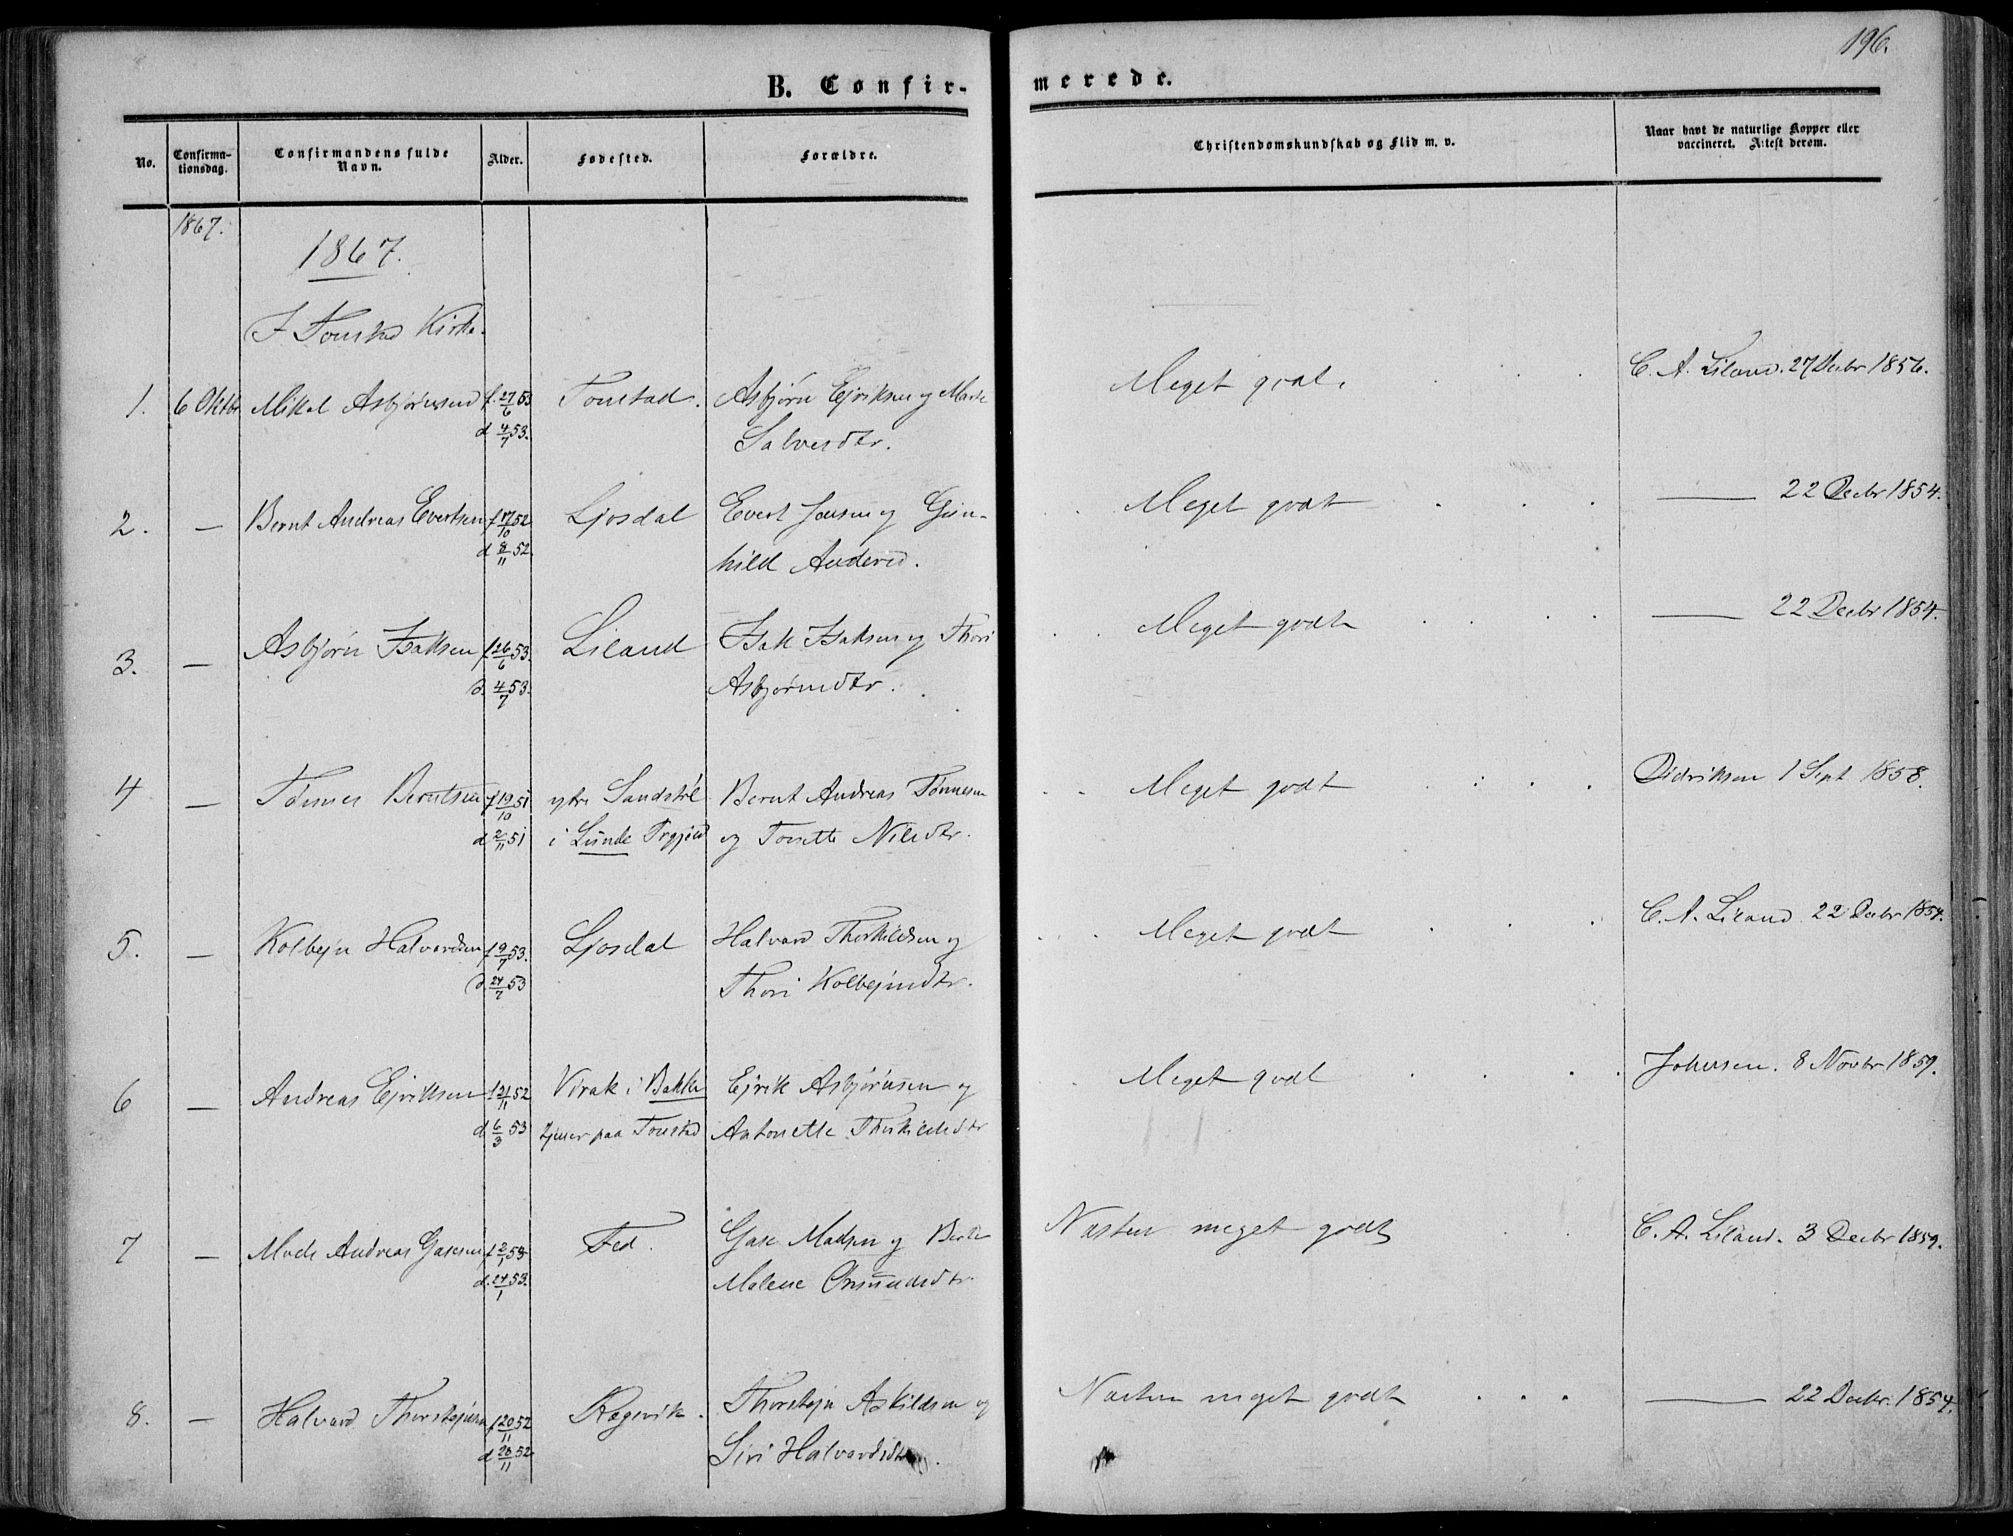 196.
B. Confirmerede.
No.
Confirma-
tionsdag.
Confirmandens fulde
Navn.
Alder.
Fødested.
Forældre.
Christendomskundskab og Flid m. v.
Naar havt de naturlige Kopper eller
vaccineret. Attest derom.
1867.
1867.
I Tonstad Kirke.
1. 6 Oktbr Mikel Asbjørnsen f. 27/6 53 Tonstad. Asbjørn Ejriksen og Marte Meget godt. C. A. Liland. 27 Decbr 1856.
d 4/7 53. Salvesdtr.
2. — Bernt Andreas Evertsen f 17/10 52 Ljosdal Evert Jensen og Gun- Meget godt — 22 Decbr 1854.
d 8/11 52. hild Andersd.
3. — Asbjørn Isaksen f 26/6 53. Liland Isak Isaksen og Thori Meget godt — 22 Decbr 1854.
d. 4/7 53. Asbjørnsdtr.
4 — Tønnes Berntsen f 19/10 51 ytre Sandstøl Bernt Andreas Tønnesen Meget godt Didriksen 1 Sept 1858.
d 2/11 51 i Lunde Prgjæld og Tonette Nilsdtr.
5. — Kolbejn Halvordsen f 9/7 53. Ljosdal Halvord Thorkildsen og Meget godt C. A. Liland 22 Decbr 1854.
d. 24/7 53 Thori Kolbejnsdtr.
6 — Andreas Ejriksen f 21/11 52 Virak i Bakke Ejrik Asbjørnsen og Meget godt Johnsen. 8 Novbr 1859.
d 6/3 53 tjener paa Tonstad Antonette Thorkildsdtr
7 — Mads Andreas Gasesen f 2/1 53 Fed. Gase Madsen og Berte Næsten meget godt C. A. Liland. 3 Decbr 1859.
d. 24/1 53. Malene Omundsdtr.
8. — Halvard Thorstejnsen f 20/11 52 Røgevik. Thorstejn Askildsen og Næsten meget godt — 22 Decbr. 1854.
d 28/11 52 Siri Halvordsdtr.